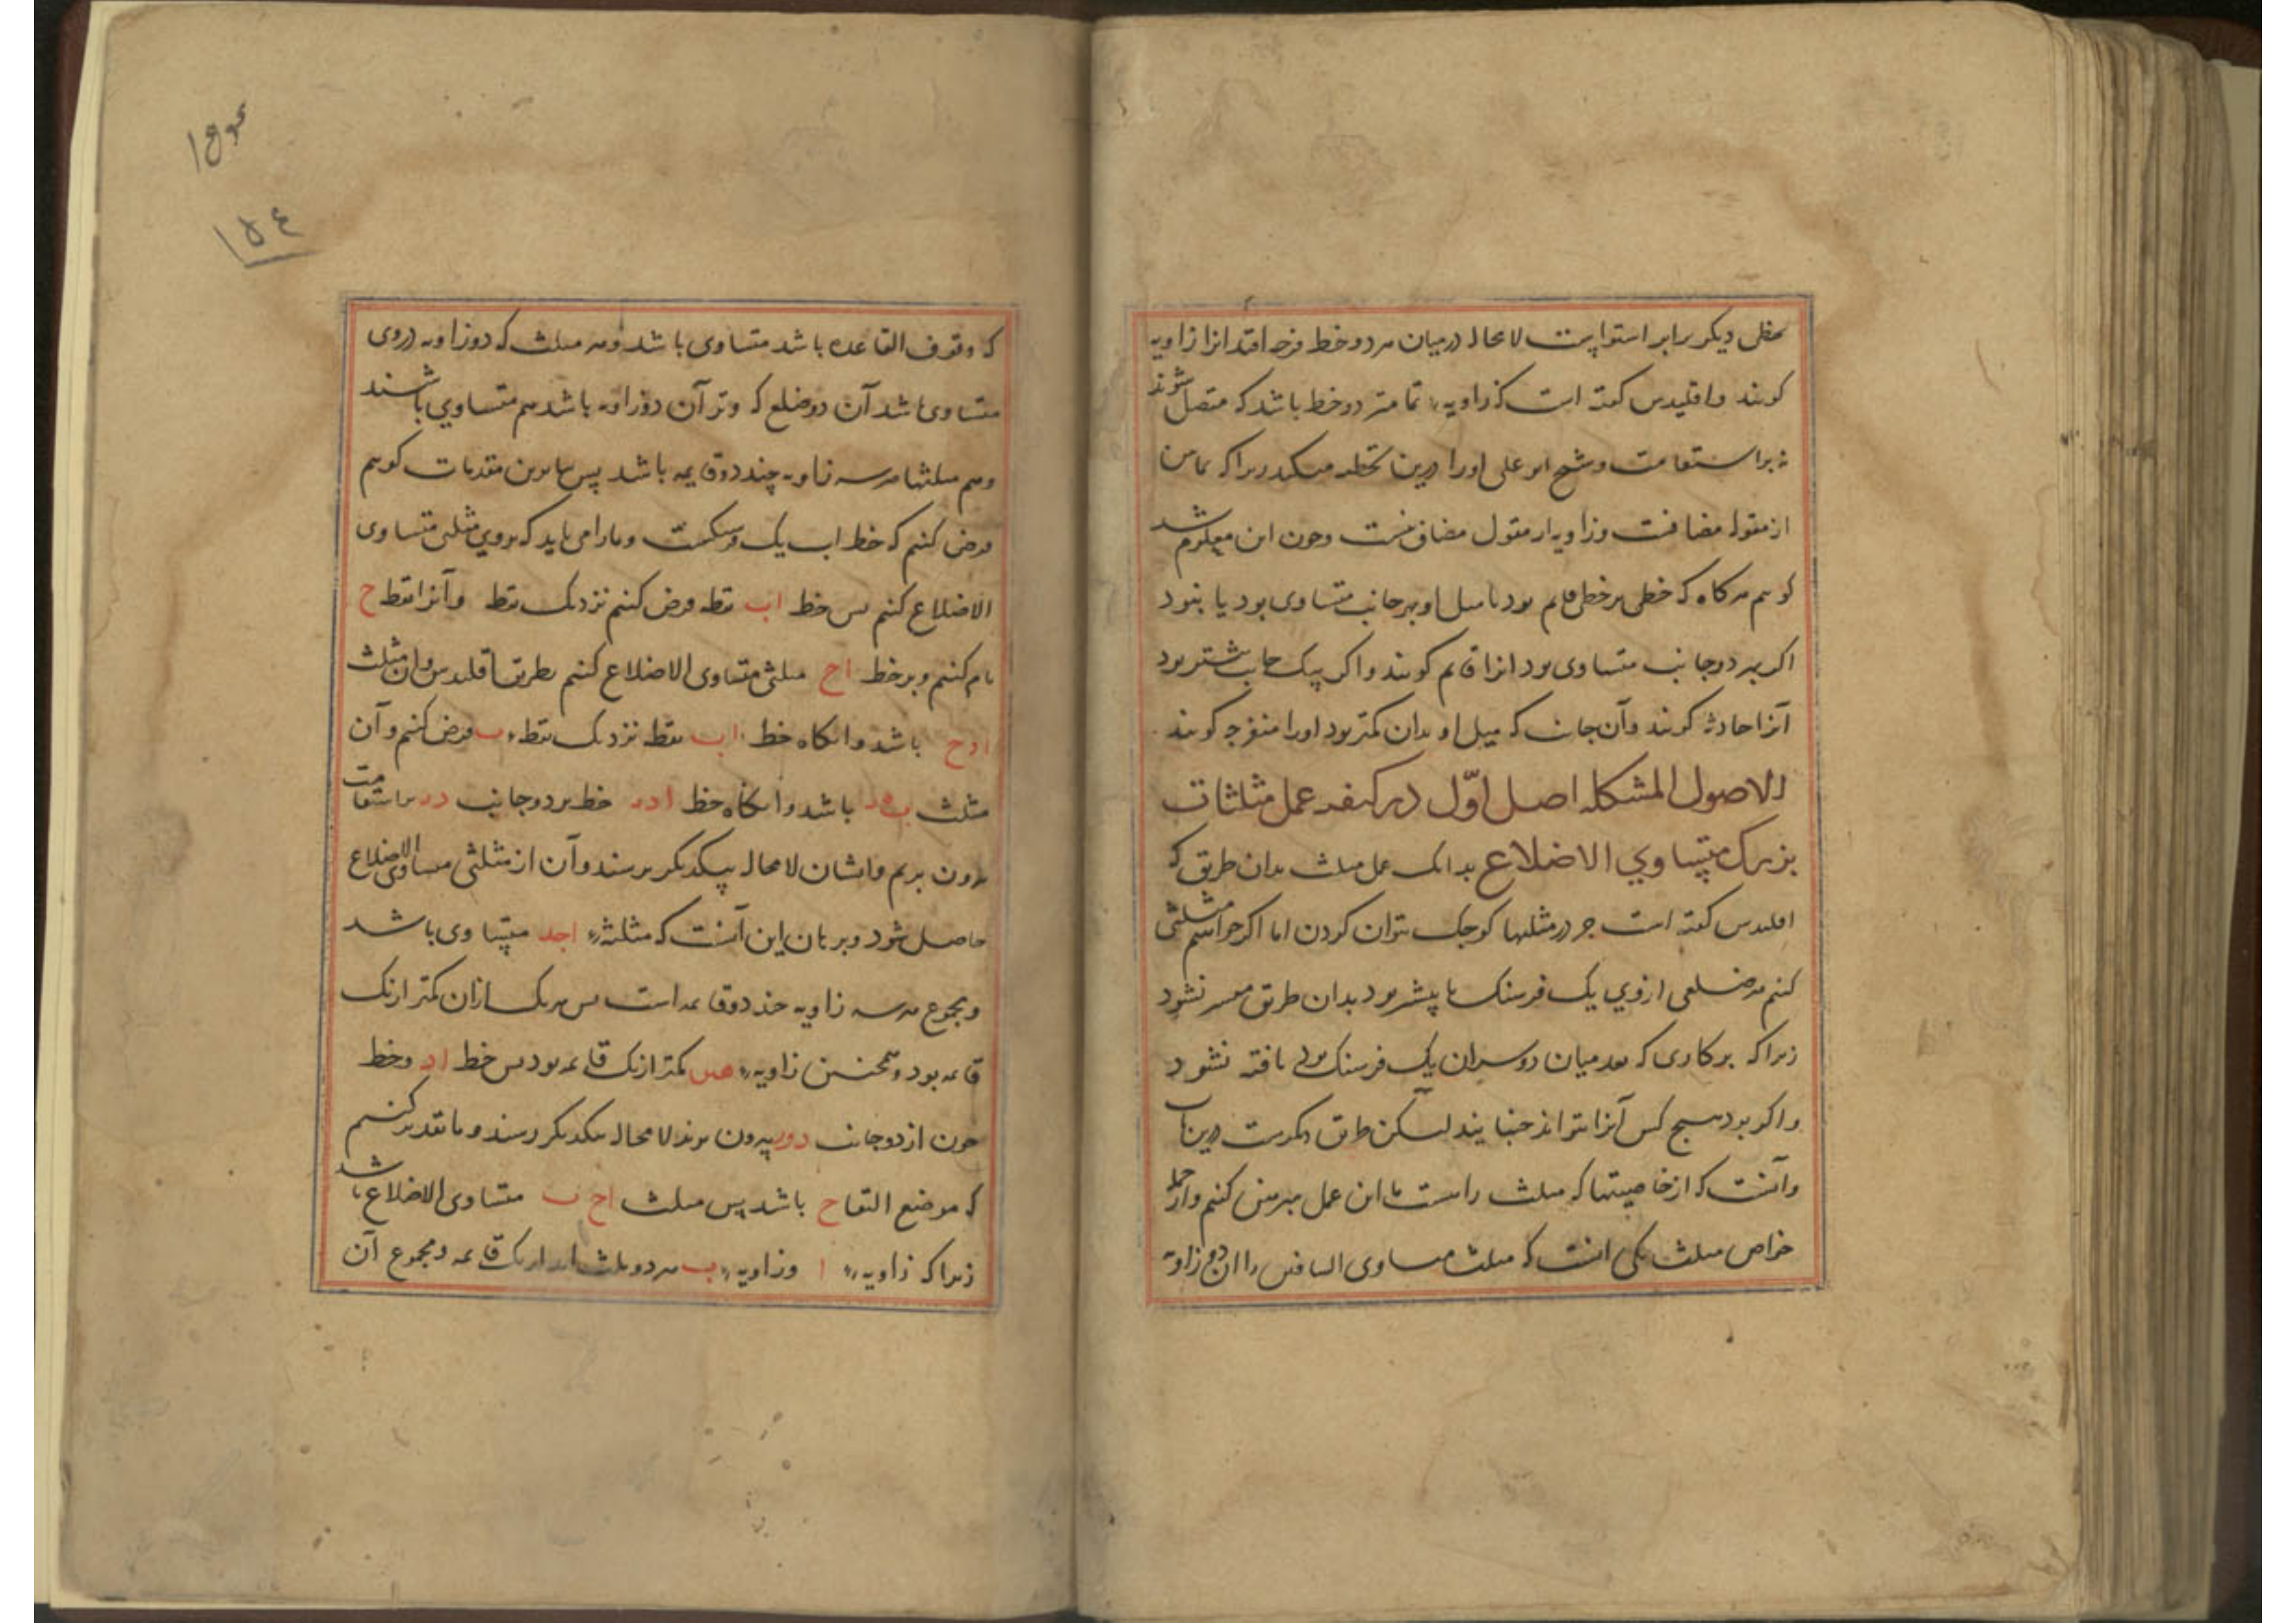 خطی دیکر برابر استوا پست لا محاله درمیان هر دو خط فرجه افتد انرا زاویه
کویند و اقلیدس کفته است که زاویه تماستر دو خط باشد که متصل شوند
نه بر استقامت و شیخ ابو علی او را درین تخطئه میکند زیرا که تماس
از مقوله مضافست و زاویه از مقوله مضاف نیست و چون این معلوم شد
کوییم هرکاه که خطی بر خطی قایم بود تا میل او بهر جانب متساوی بود یا نبود
اکر بهر دو جانب متساوی بود انرا قایم کویند و اکر بیک جانب بیشتر بود
آنرا حاده کویند و آن جانب که میل او بدان کمتر بود او را منفرجه کویند
الاصول المشکله اصل اوّل در کیفیه عمل مثلثات
بزرک متساوي الاضلاع بدانک عمل مثلث بدان طریق که
اقلیدس کفته است جز در مثلثها کوچک نتوان کردن اما اکر خواهیم مثلثی
کنیم هر ضلعی ازوي یک فرسنک یا بیشتر بود بدان طریق میسر نشود
زیرا که پرکاری که بعد میان دو سر ان یک فرسنک بود یافته نشود
و اکر بود هیچ کس آنرا نتواند جنبانید لیکن طریق دیکرست درین باب
و آنست که از خاصیتها که مثلث راست ما این عمل مبرهن کنیم و از جمله
خواص مثلث یکی انست که مثلث متساوی الساقین را ان دو زاویه
که وقوف القاعده باشد متساوی باشد و هر مثلث که دو زاویه در وی
متساوی باشد آن دو ضلع که وتر آن دو زاویه باشد هم متساوي باشند
و هم مثلثها هر سه زاویه چند دو قایمه باشد پس بنا برین مقدمات کوییم
فرض کنیم که خط اب یک فرسنکست و ما را می باید که بر وي مثلثی متساوی
الاضلاع کنیم پس خط اب نقطه فرض کنیم نزدیک نقطه و آنرا نقطه ح
نام کنیم و بر خط اح مثلثی متساوی الاضلاع کنیم بطریق اقلیدس و ان مثلث
ادح باشد و انکاه خط اب نقطه نزدیک نقطه ب فرض کنیم و آن
مثلث باشد و انکاه خط ادر خط بر دو جانب در بر استقامت
بیرون بریم و ایشان لا محاله بیکدیکر برسند و آن از مثلثی متساوی الاضلاع
حاصل شود و برهان این آنست که مثلثه اجد متساوی باشد
و مجموع هر سه زاویه چند دو قایمه است پس هر یک ازان کمتر از یک
قایمه بود و همچنین زاویه کمتر از یک قایمه بود پس خط اد و خط
چون از دو جانب بیرون بروند لا محاله بیکدیکر رسند و ما تقدیر کنیم
که موضع التقا ح باشد پس مثلث اح ب متساوی الاضلاع باشد
زیرا که زاویه ا و زاویه ب هر دو از یک قایمه و مجموع آن
۱۵۴